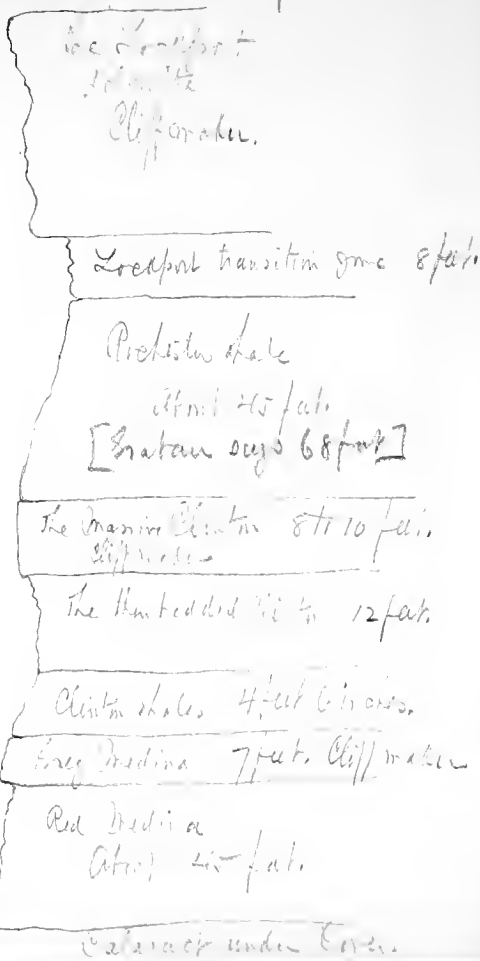 Lockport
Cliff maker.
Lockport transition zone 8 feet.
Rochester shale
About 45 feet.
[Grabau says 68 feet]
The Massive Clinton 8 to 10 feet.
Cliff maker
The thin bedded Clinton 12 feet.
Clinton shales 4 feet 6 inches.
Grey Medina 7 feet. Cliff maker
Red Medina
About 45 feet.
under River.